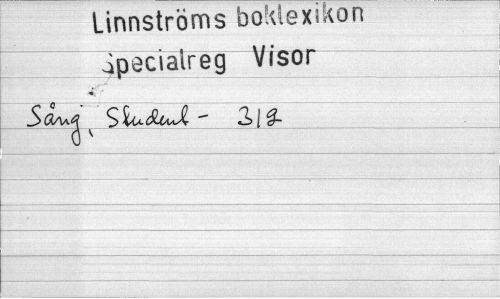 Linnströms boklexikon
Specialreg Visor
Sång, Student- 319